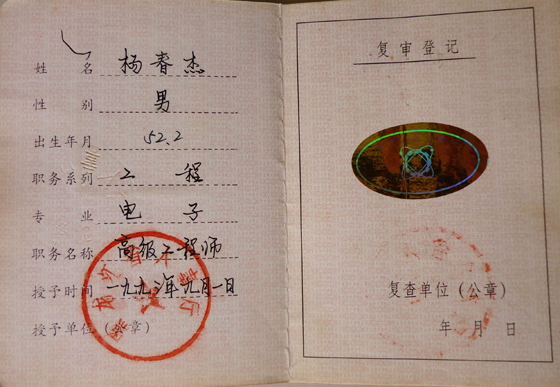 姓 名 杨春杰
性 别 男
出生年月 52.2
职务系列 工 程
专 业 电 子
职务名称 高级工程师
授予时间 一九九三年九月一日
授予单位（公章）
复审登记
复查单位（公章）
年 月 日